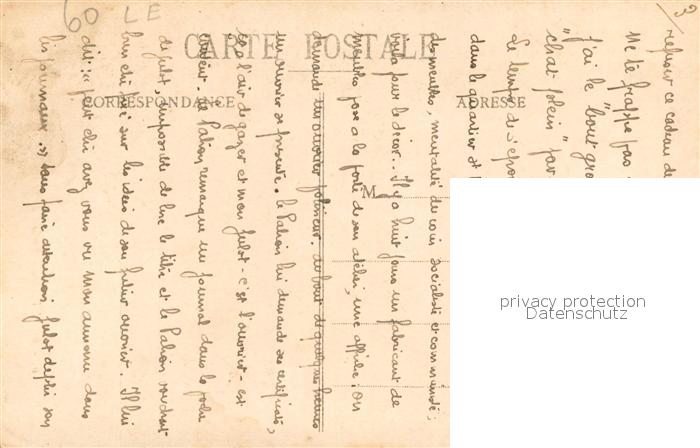 3
60 LE
CARTE POSTALE
CORRESPONDANCE
ADRESSE
M
refuser ce cadeau de
Ne te frappe pas
j'ai le "bout gro
"chat plein" par
Le temps de s'épou
dans le quartier et
des meubles, mentalité du coin socialiste et communiste,
voilà pour le décor. Il y a huit jours un fabricant de
meubles pose à la porte de son atelier, une affiche: on
demande un ouvrier polisseur. au bout de quelques heures
un ouvrier se présente. le Patron lui demande ses certificats,
il a l'air de gazer et mon Julot - c'est l'ouvrier - est
content. Le Patron remarque un journal dans la poche
de Julot, impossible de lire le titre et le Patron voudrait
bien être fixé sur les idées de son futur ouvrier. Il lui
dit: peut être avez vous vu mon annonce dans
les journaux. » sans faire attention Julot déplie son
privacy protection
Datenschutz